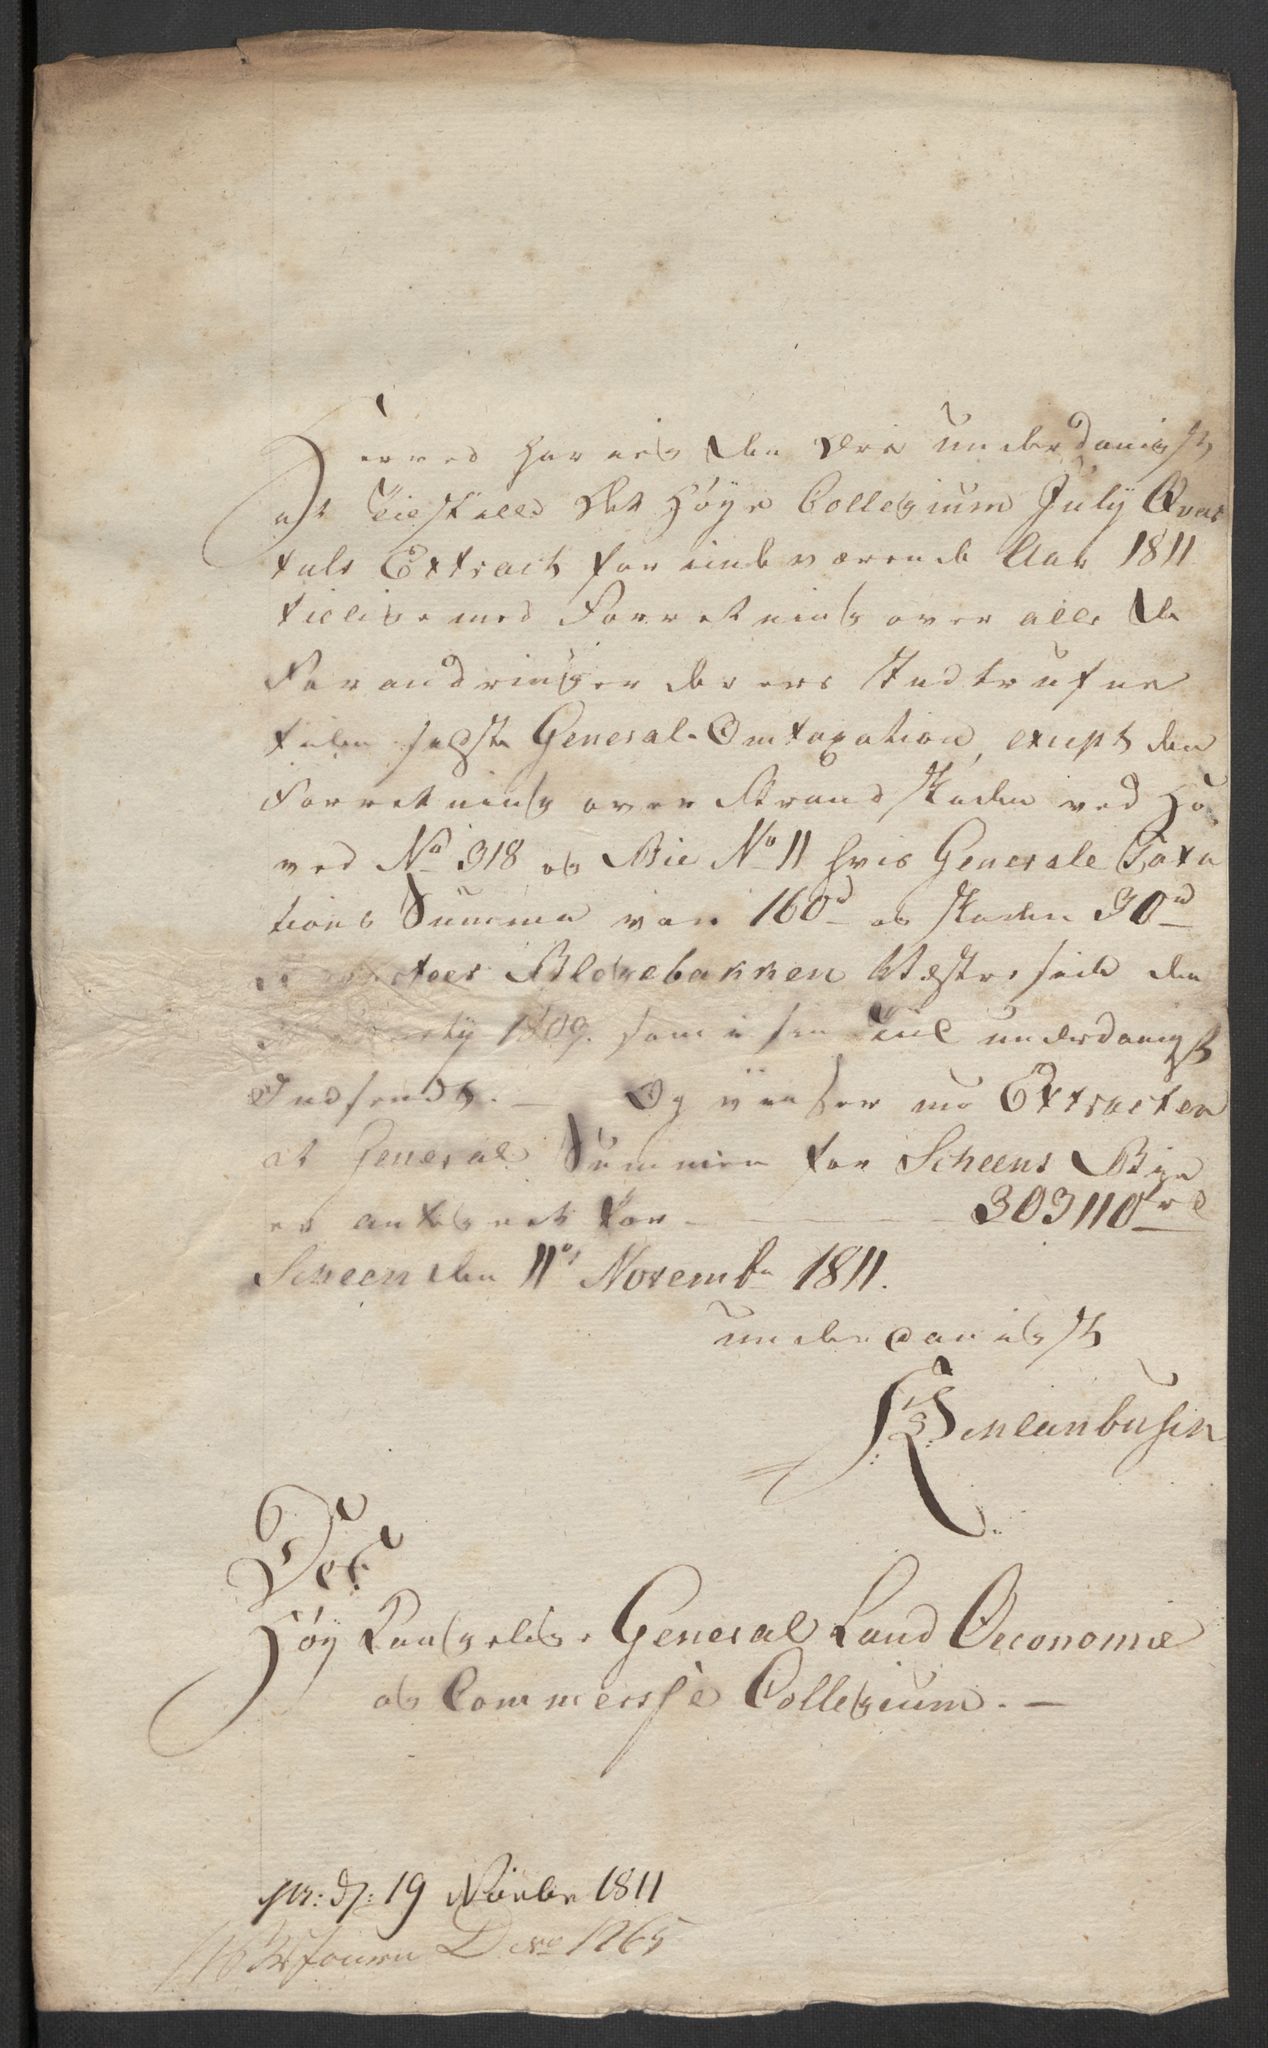 Herved har jeg den Ære underdanigst
at tilstille Det Høye Collegium July Qvar
tals Extract for indeværende Aar 1811
tillige med Forretning over alle de
Forandringer der ere Stedtrufne
siden sidste General-Omtaxation, exept den
Forretning over Brand skaden ved Ho
ved No 318 og Bie No 11 hvis Generale Taxa
tions Summa var 160rd og skaden 30rd
Blegebakken Westre side den
July 1809. som i sin Tiid underdanigst
Indsendt. — Og viiser nu Extracten
at General Summen for Scheens Bye
er antegnet for — 303110rd
Scheen den 11te Novembr 1811.
underdanigst
Det
Høy Kongelige General Land Oeconomie
og Commersse Collegium. —
pr: d: 19 Novbr 1811
Journ D No 1265